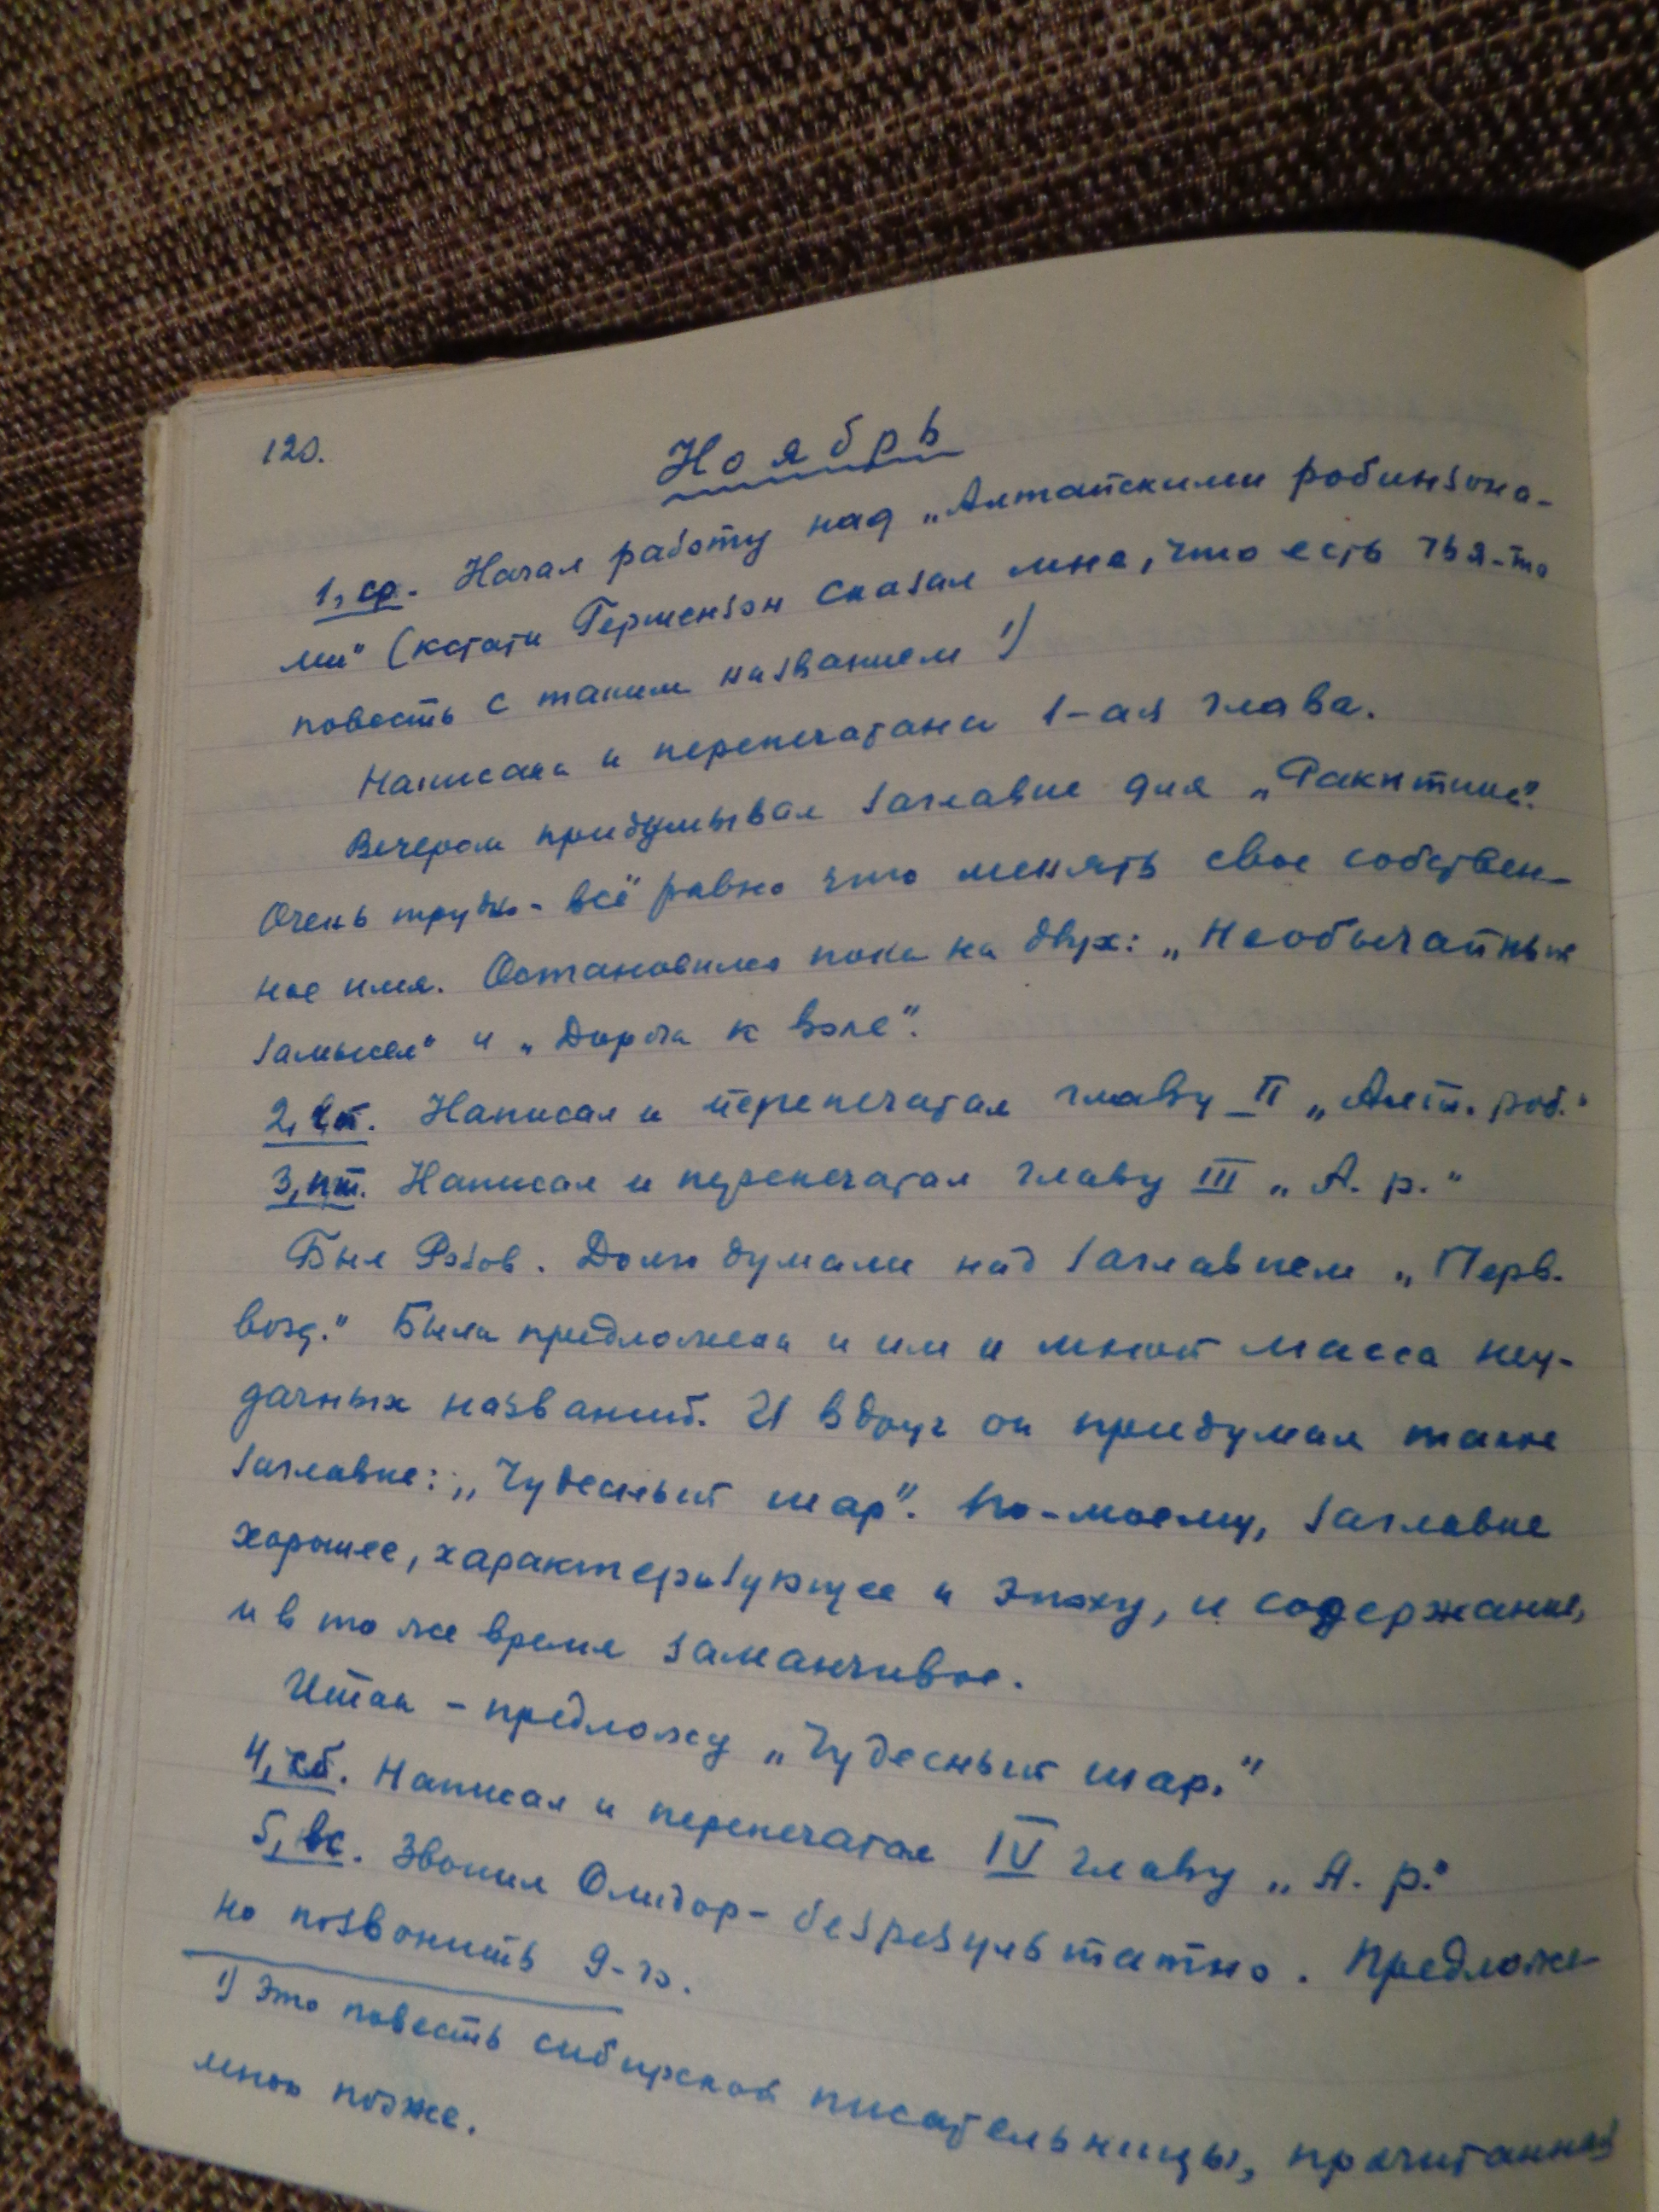 120.
Ноябрь
1, ср. Начал работу над „Алтайскими робинзона-
ми" (кстати Гершензон сказал мне, что есть чья-то
повесть с таким названием 1)
Написана и перепечатана 1-ая глава.
Вечером придумывал заглавие для „Ракитина".
Очень трудно - всё равно что менять свое собствен-
ное имя. Остановился пока на двух: „Необычайный
замысел" и „Дорога к воле".
2, чт. Написал и перепечатал главу II „Алт. роб."
3, пт. Написал и перепечатал главу III „А. р."
Был Розов. Долго думали над заглавием „Перв.
возд." Была предложена и им и мной масса неу-
дачных названий. И вдруг он придумал такое
заглавие: „Чудесный шар". По-моему, заглавие
хорошее, характеризующее и эпоху, и содержание,
и в то же время заманчивое.
Итак - предложу „Чудесный шар."
4, сб. Написал и перепечатал IV главу „А. р."
5, вс. Звонил Олидор - безрезультатно. Предложе-
но позвонить 9-го.
1) Это повесть сибирской писательницы, прочитанная
мною позже.